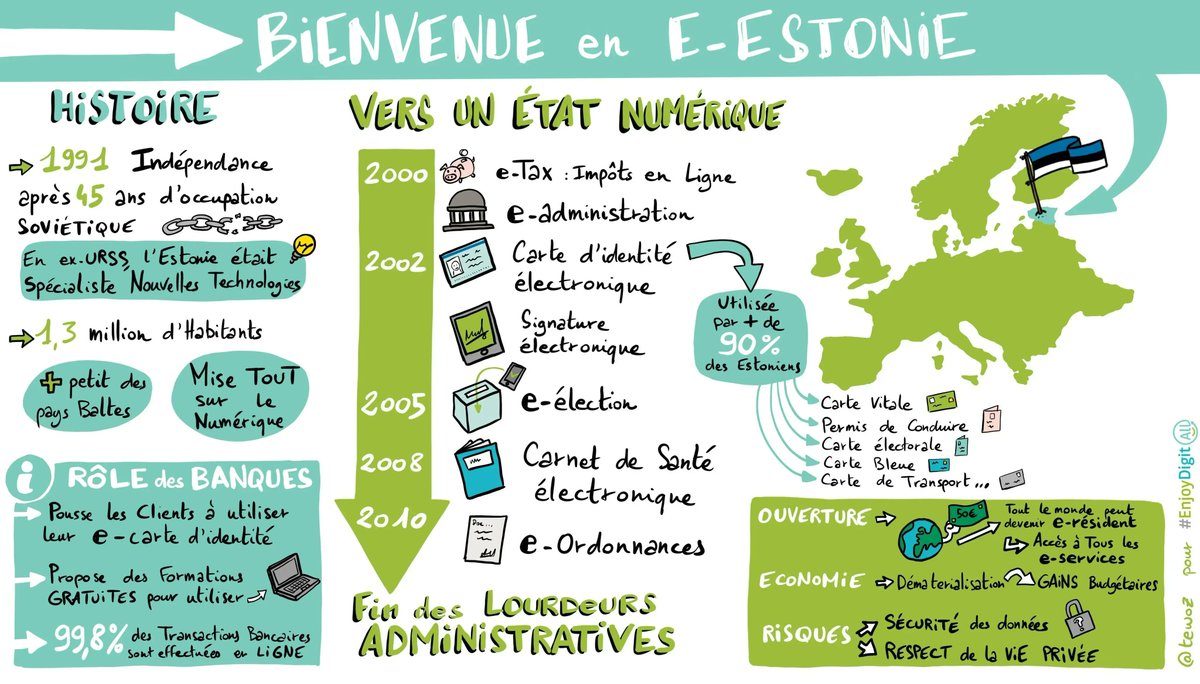 BiENVENUE en E-ESTONIE
HiSTOiRE
1991 Indépendance
après 45 ans d'occupation
SOVIÉTIQUE
En ex-URSS, l'Estonie était
Spécialiste Nouvelles Technologies
1,3 million d'Habitants
+ petit des
pays Baltes
Mise TOUT
sur le
Numérique
i RÔLE des BANQUES
Pousse les Clients à utiliser
leur e-carte d'identité
Propose des Formations
GRATUITES pour utiliser
99,8% des Transactions Bancaires
sont effectuées en LiGNE
VERS UN ÉTAT NUMÉRIQUE
2000 e-Tax : Impôts en Ligne
e-administration
2002 Carte d'identité
électronique
Signature
électronique
2005 e-élection
2008 Carnet de Santé
électronique
2010
Doc...
e-Ordonnances
Fin des LOURDEURS
ADMINISTRATIVES
Utilisée
par + de
90%
des Estoniens
Carte Vitale
Permis de Conduire
Carte électorale
Carte Bleue
Carte de Transport...
OUVERTURE
50€
Tout le monde peut
devenir e-résident
Accès à Tous les
e-services
ECONOMIE Dématerialisation GAiNS Budgétaires
RiSQUES SÉCURITÉ des données
RESPECT de la ViE PRIVÉE
@tewoz pour #EnjoyDigitAll